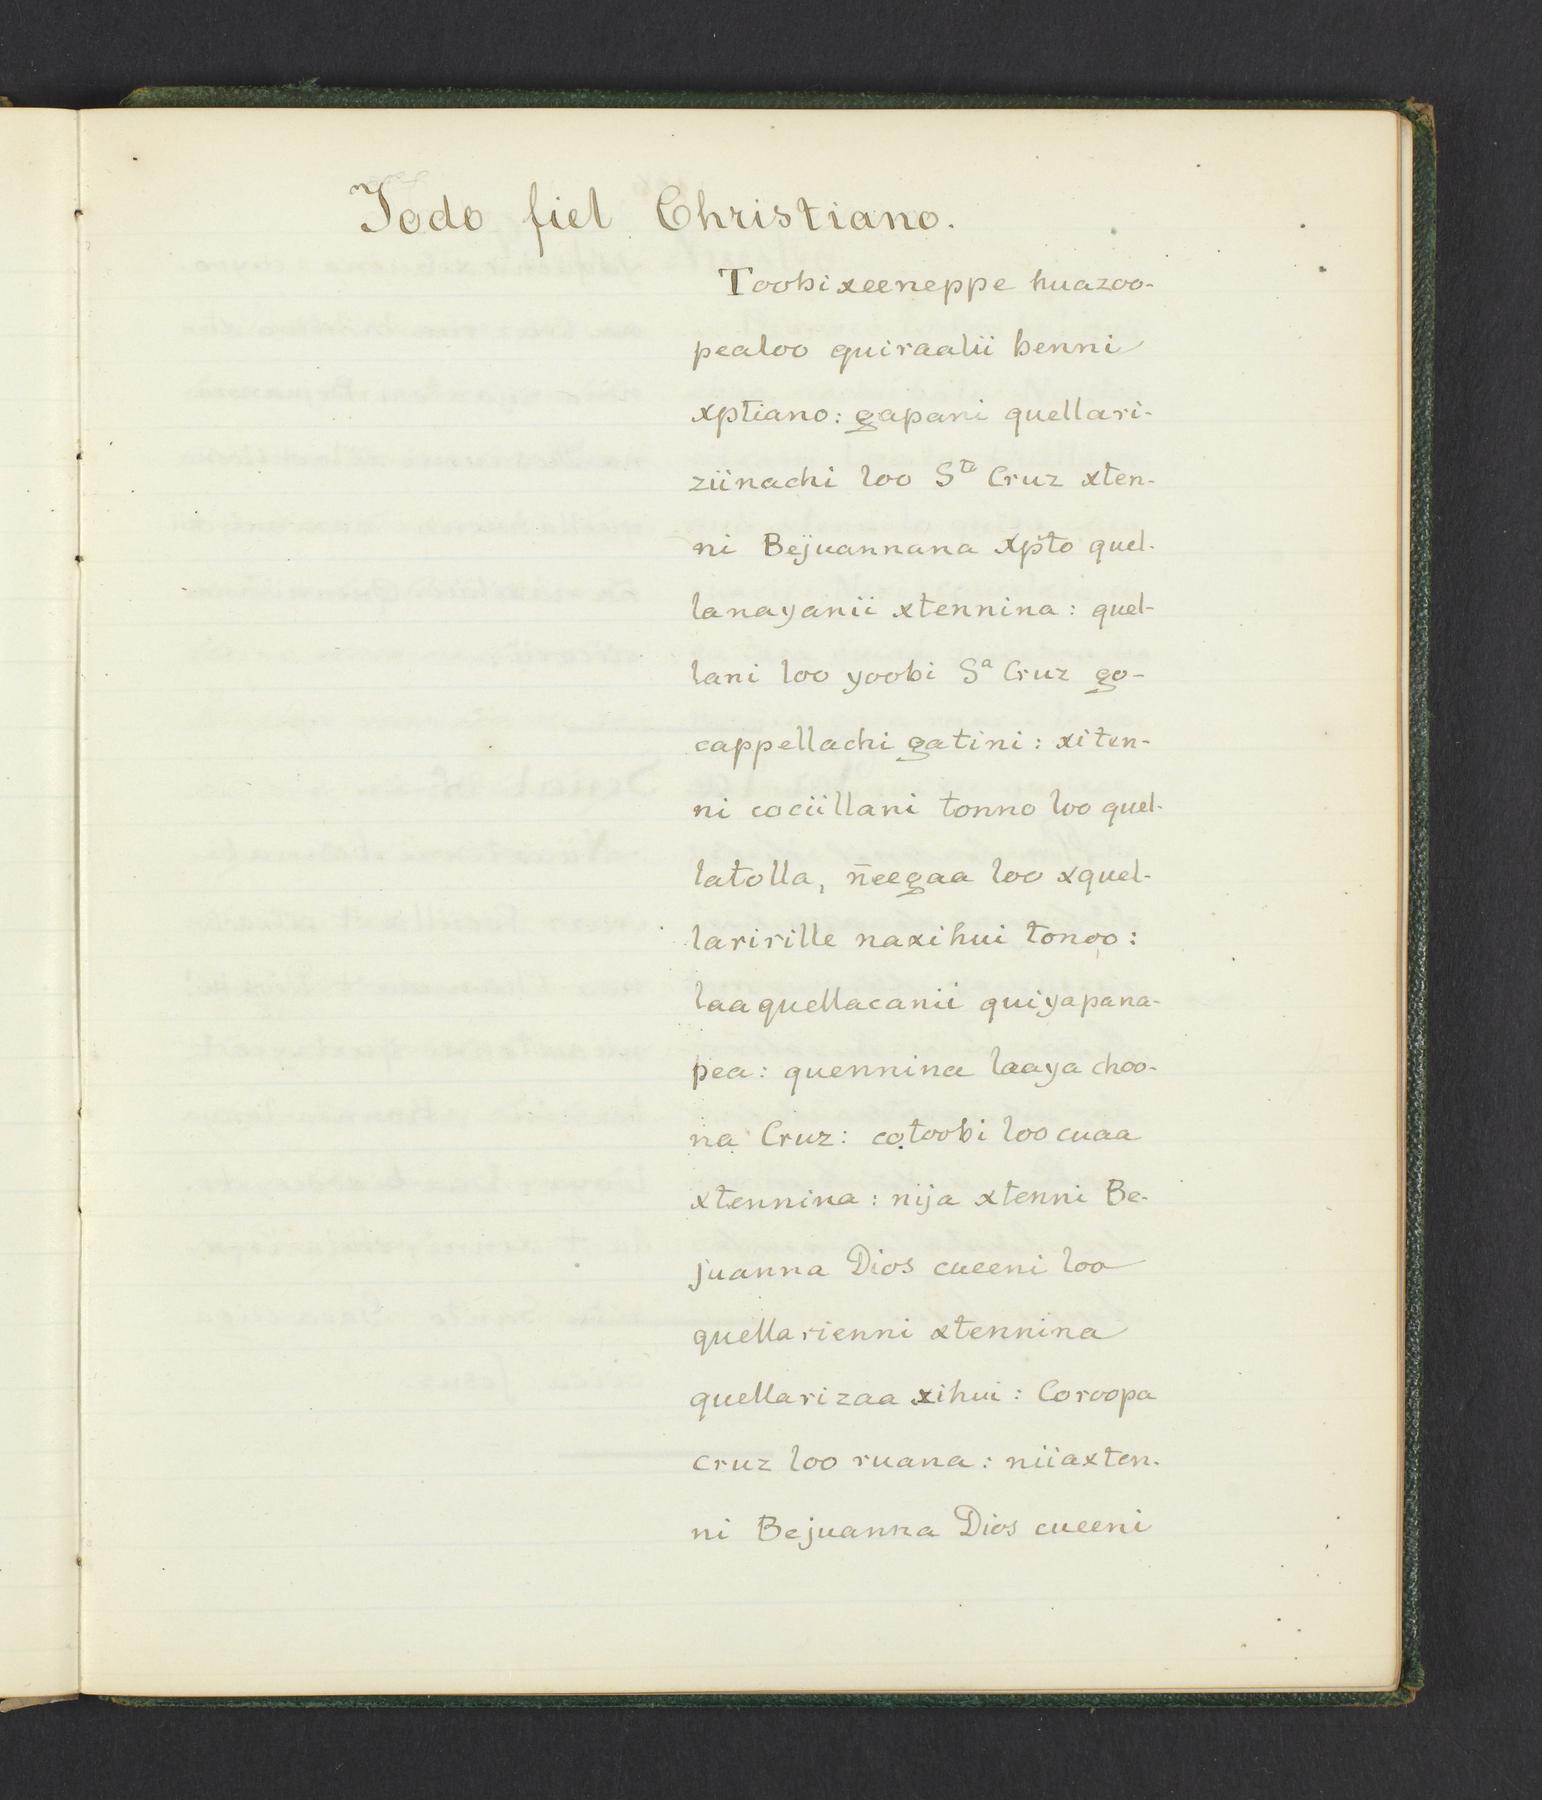 Todo fiel Christiano.
Toobixeeneppe huazoo-
pealoo quiraalii benni
xptiano: gapani quellari-
ziinachi loo S.ta Cruz xten-
ni Bejuannana Xpto quel-
lanayanii xtennina: quel-
lani loo yoobi Sª Cruz go-
cappellachi gatini: xiten-
ni cociillani tonno loo quel-
latolla, ñeegaa loo xquel-
larirille naxihui tonoo:
laaquellacanii quiyapana-
pea: quennina laaya choo-
na Cruz: cotoobi loo cuaa
xtennina: nija xtenni Be-
juanna Dios cueeni loo
quellarienni xtennina
quellarizaa xihui: Coroopa
cruz loo ruana: niiaxten-
ni Bejuanna Dios cueeni